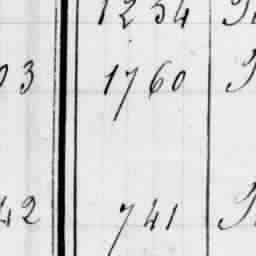 1234
03 1760
42 741